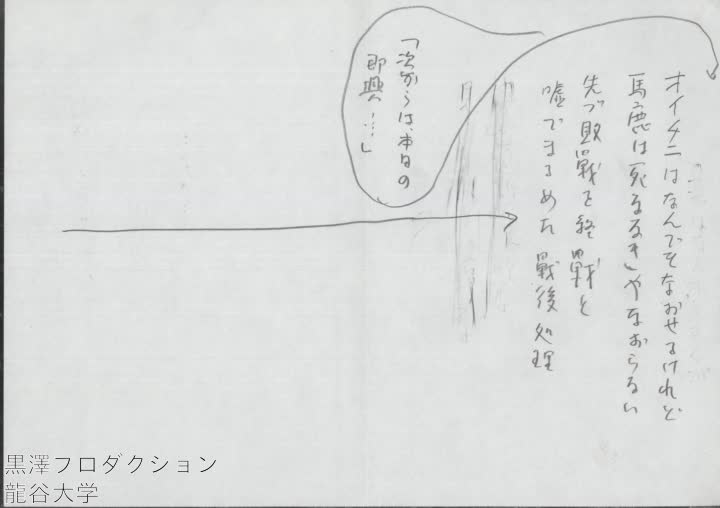 オイチニはなんでもなおせるけれど
馬鹿は死ななきゃなおらない
先づ敗戦を終戦と
嘘でまるめた戦後処理
「次からは、本日の
即興……」
黒澤プロダクション
龍谷大学